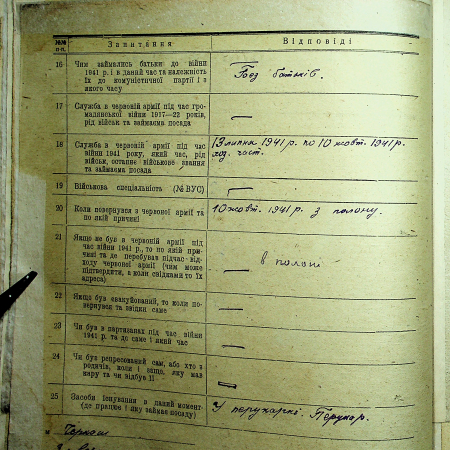 №№ п-п. Запитання Відповіді
16 Чим займались батьки до війни
1941 р. і в даний час та належність
їх до комуністичної партії і з
якого часу
Без батьків.
17 Служба в червоній армії під час гро-
мадянської війни 1917—22 років,
рід військ та займаєма посада
—
18 Служба в червоній армії під час
війни 1941 року, який час, рід
військ, останнє військове звання
та займаєма посада
13 липня 1941 р. по 10 жовт. 1941 р.
част.
19 Військова спеціальність (№ ВУС)
—
20 Коли повернувся з червоної армії та
по якій причині
10 жовт. 1941 р. з полону.
21 Якщо не був в червоній армії під
час війни 1941 р., то по якій при-
чині та де перебував підчас від-
ходу червоної армії (чим може
підтвердити, а коли свідками то їх
адреса)
— в полоні
22 Якщо був евакуйований, то коли по-
вернувся та звідки саме
—
23 Чи був в партизанах під час війни
1941 р. та де саме і який час
—
24 Чи був репресований сам, або хто з
родичів, коли і защо, яку мав
кару та чи відбув її
—
25 Засоби існування в даний момент
(де працює і яку займає посаду)
У перукарні. Перукар.